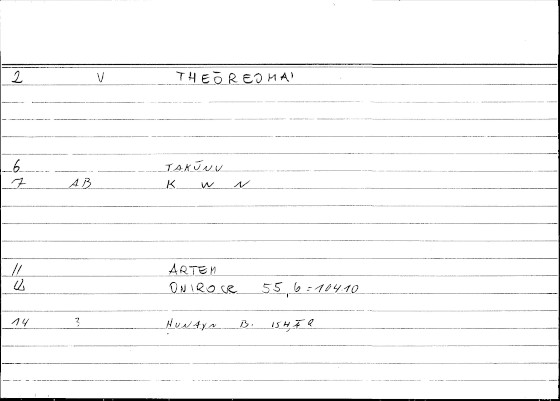 2 V THEŌREOMAI
6 TAKŪNU
7 AB K W N
11 ARTEM
12 ONIROCR 55,6=10410
14 3 ḤUNAYN B. ISḤĀQ